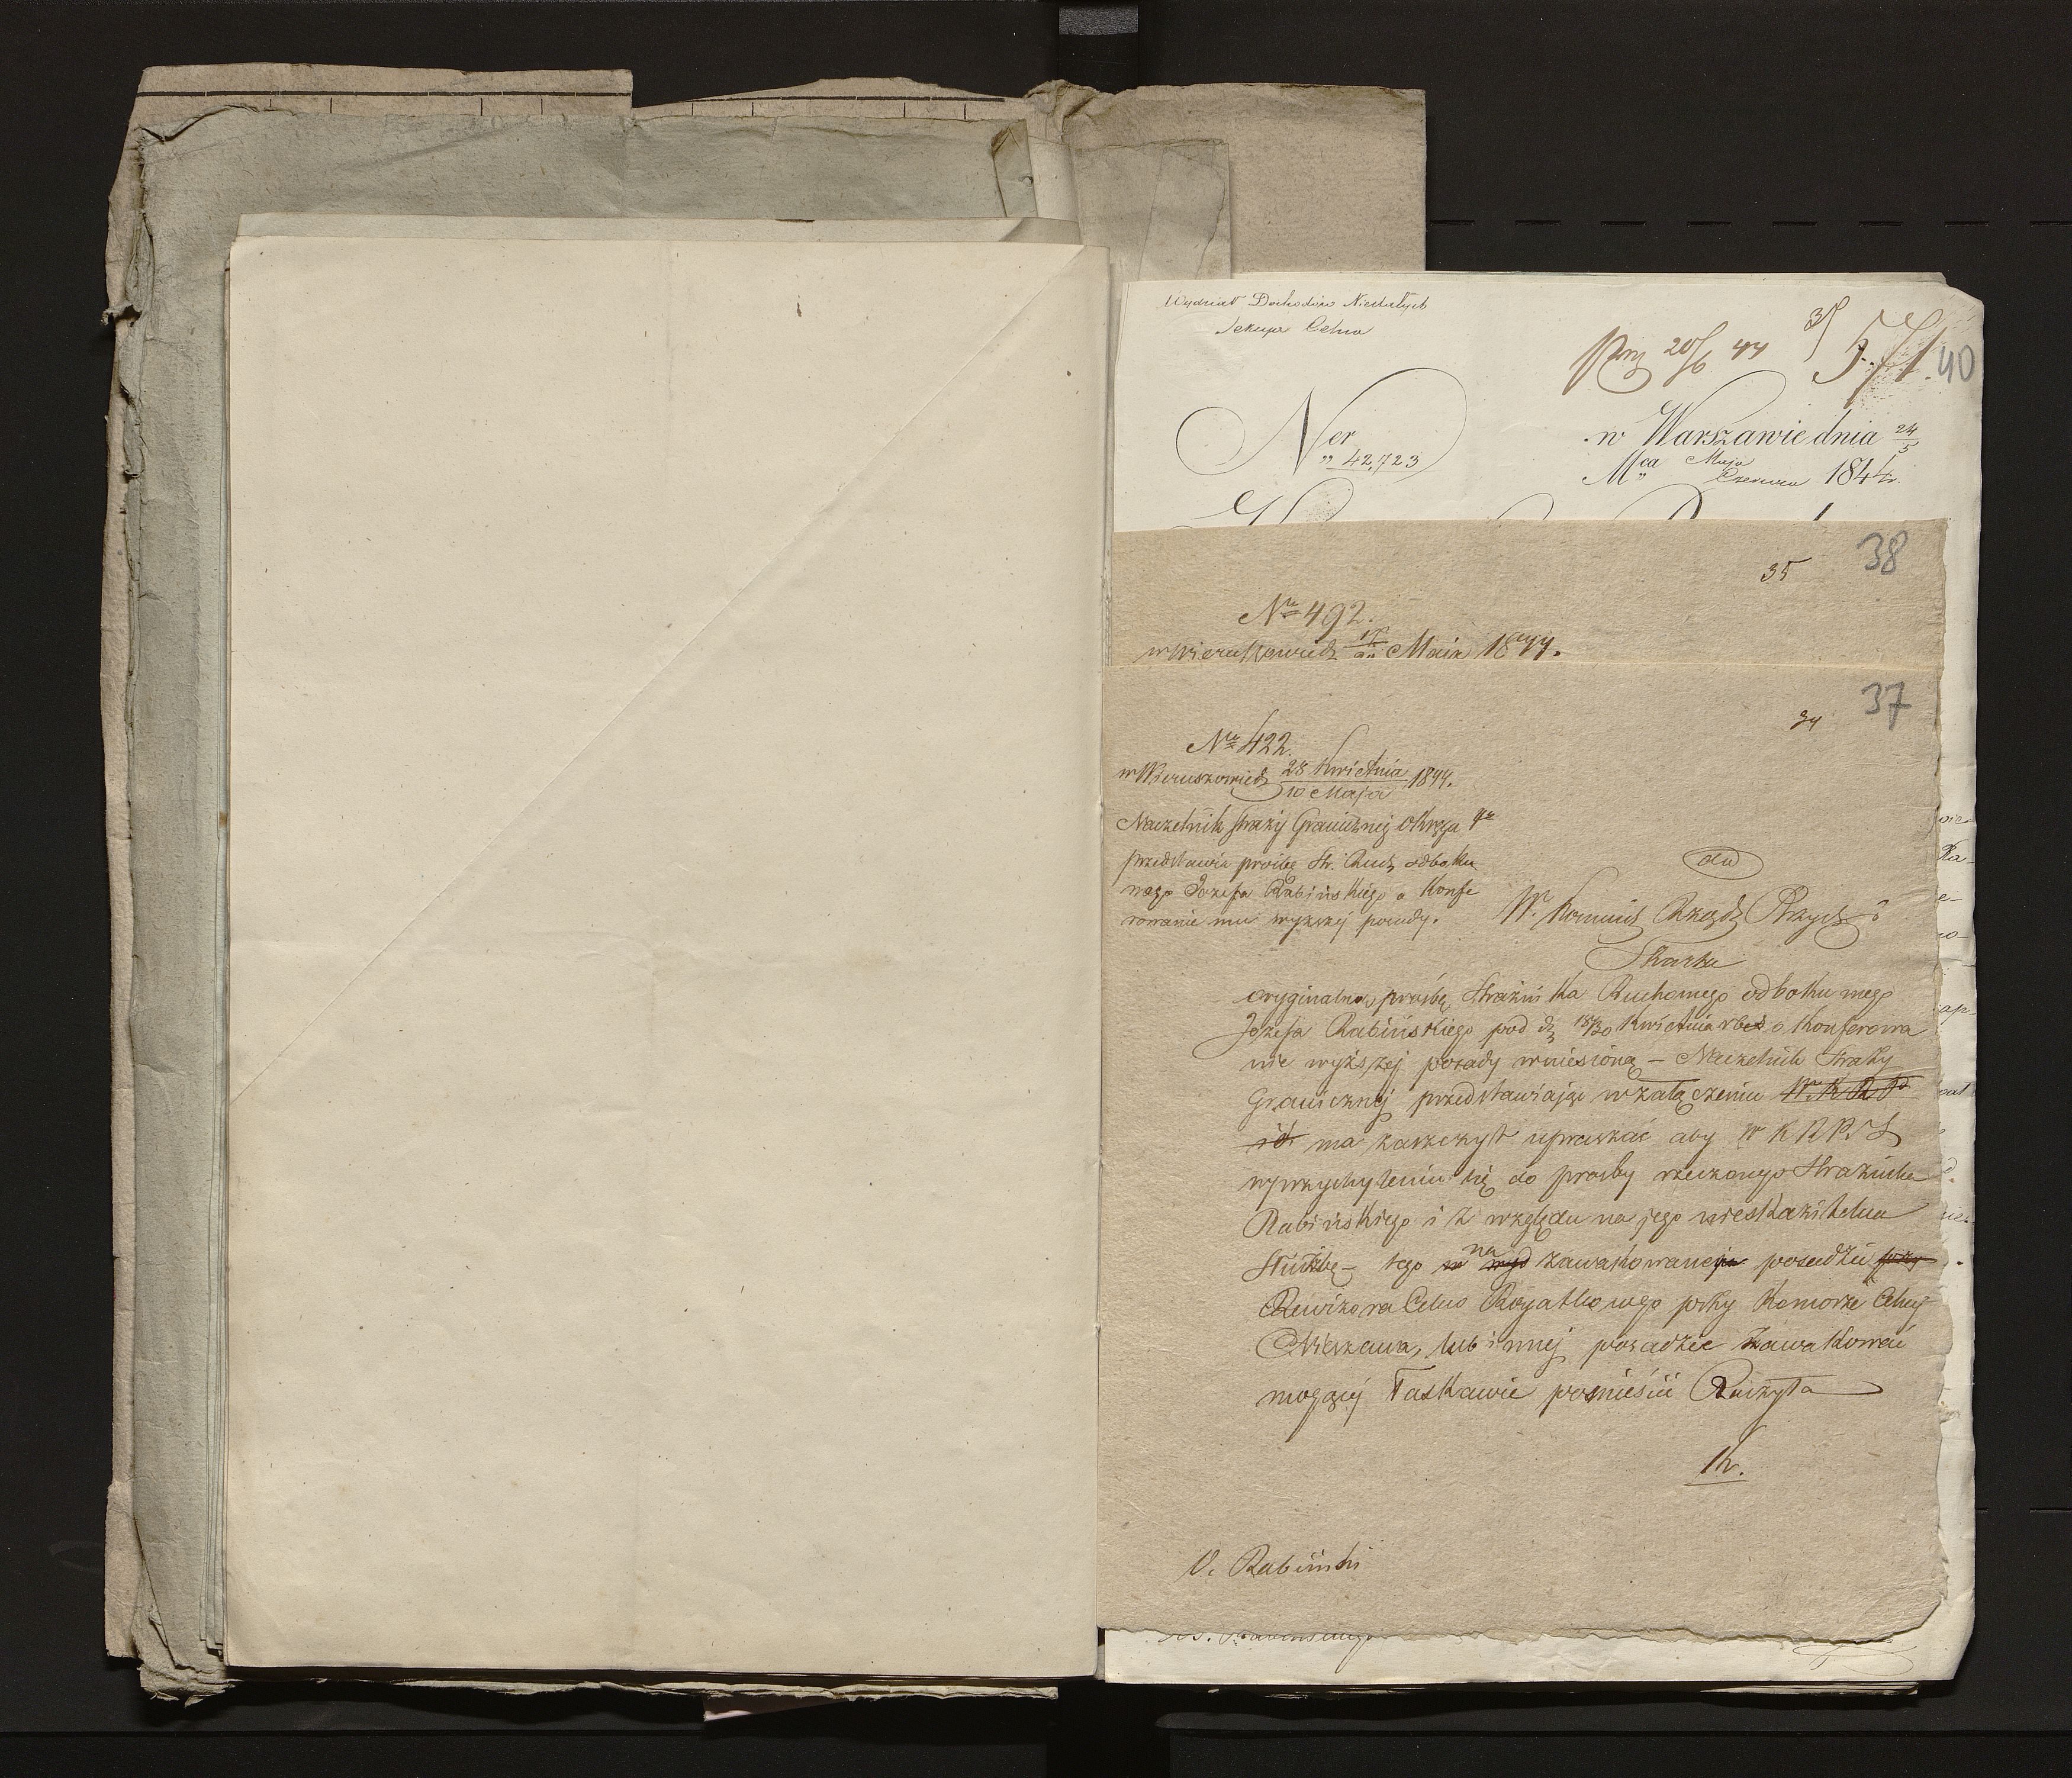 Wydział Dochodów Niestałych
Sekcya Celna
20/6 44
571
40
Ner
„ 42,723
w Warszawie dnia 24/5
Mca Maja
Czerwca 1844 r.
38
35
Nr 492.
Maja 1844.
37
34
Nr 422.
w Wieruszowie d. 28 Kwietnia / 10 Maja 1844.
Naczelnik Straży Granicznej Okręgu
przedstawia prośbę Str. Ruch. od boku
mego Józefa Rabińskiego o Konfe
rowanie mu wyższej posady.
do
W. Kommis Rządz Przych i
Skarbu
oryginalną prośbę Strażnika Ruchomego od boku mego
Józefa Rabińskiego pod d. 18/30 Kwietnia rb o Konferowa
nie wyższej posady wniesioną – Naczelnik Straży
Granicznej przedstawiając w załączeniu W. K R P
i S ma zaszczyt upraszać aby W K R P i S
w przychyleniu się do prośby rzeczonego Strażnika
Rabińskiego i z względu na jego nieskazitelną
Służbę – tego na zawakowanej posadzie
Rewizora Celno Rogatkowego przy Komorze Celnej
Nieszawa, lub innej posadzie zawakować
mogącej łaskawie pomieścić Raczyła
V. Rabiński